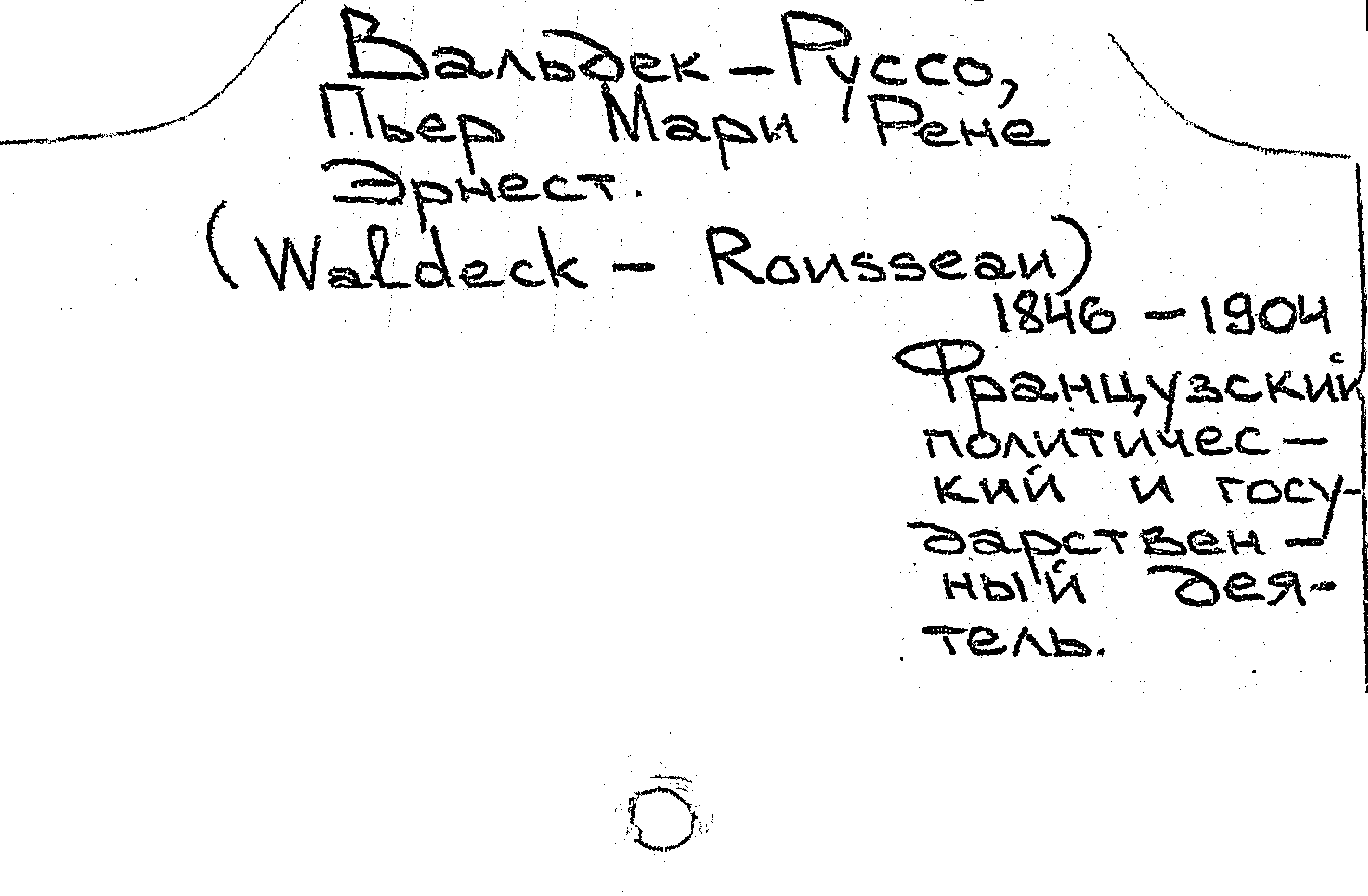 Вальдек – Руссо,
Пьер Мари Рене
Эрнест.
(Waldeck – Rousseau)
1846 – 1904
Французский
политичес –
кий и госу-
дарствен –
ный дея-
тель.